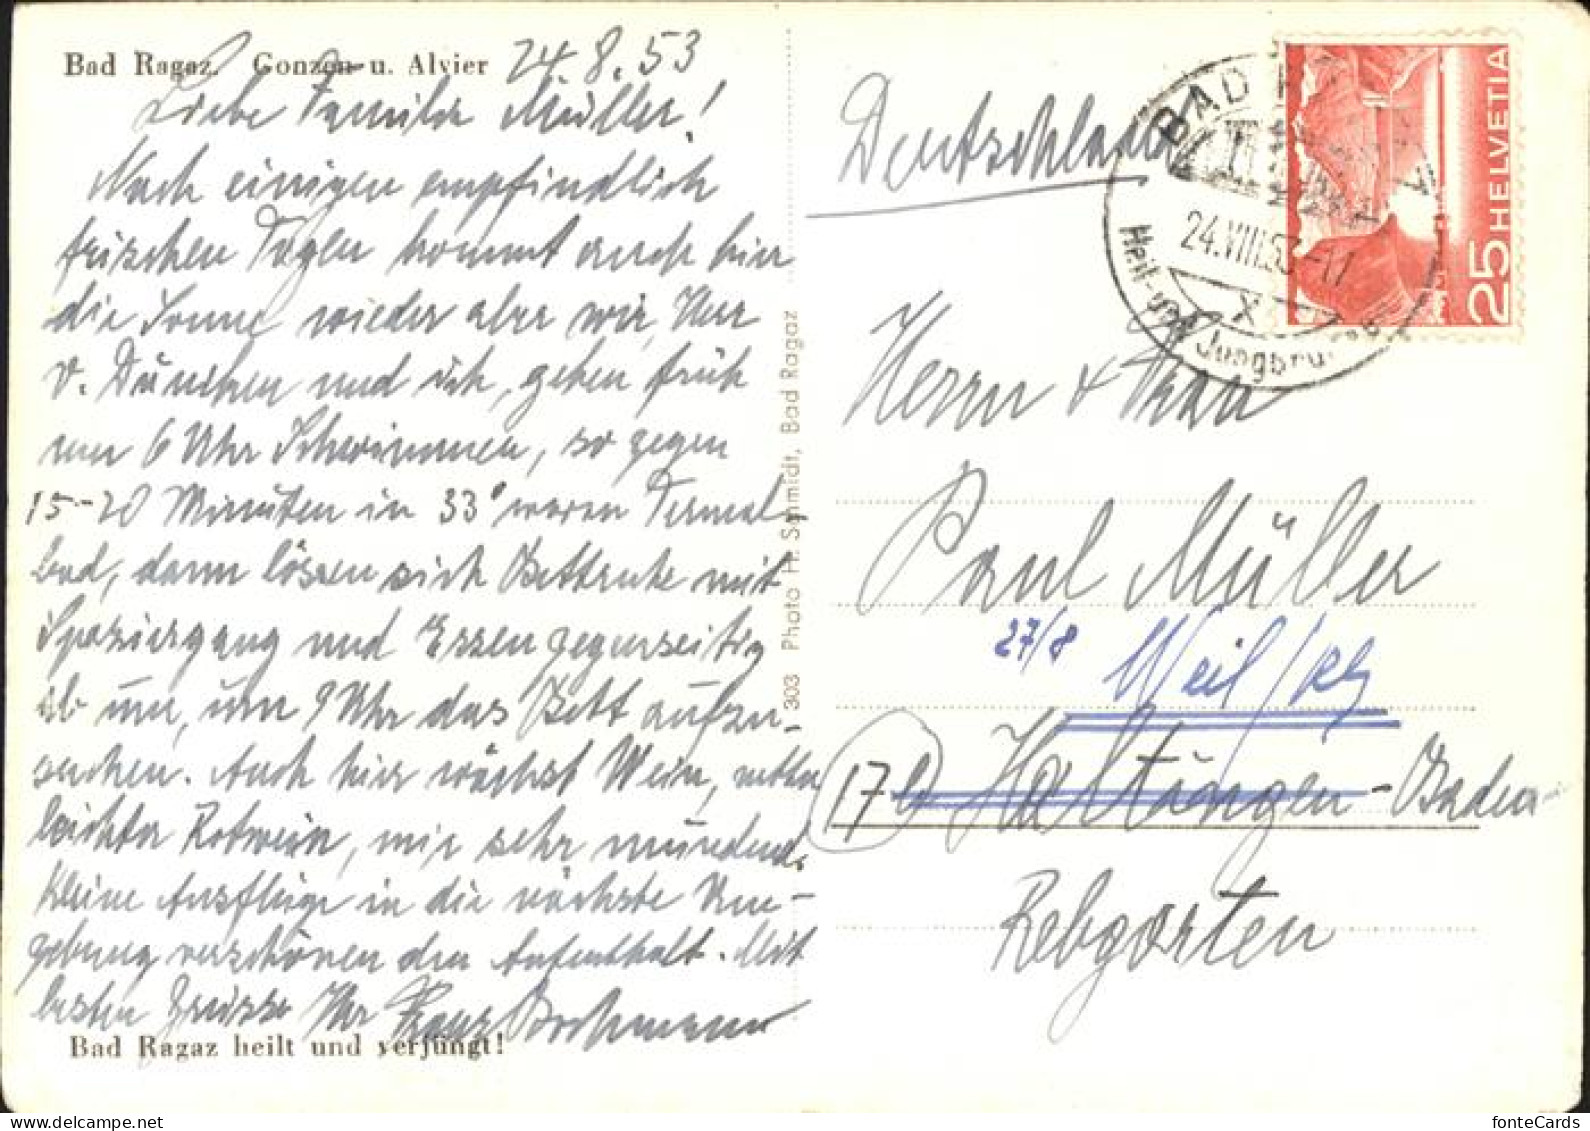 Bad Ragaz. Gonzen u. Alvier 24.8.53
Liebe Familie Müller!
Nach einigen empfindlich
frischen Tagen kommt auch hier
die Sonne wieder aber wir, Herr
v. Düniken und ich, gehen früh
um 6 Uhr Schwimmen, so gegen
15-20 Minuten in 33° waren Termal-
bad, dann lössen sich Bettruhe mit
Spaziergang und Essen gegenseitig
ab um, um 9 Uhr das Bett aufzu-
suchen. Auch hier wächst Wein, netter
leichter Rotwein, mir sehr mundend.
Kleine Ausflüge in die nächste Um-
gebung verschönen den Aufenthalt. Mit
besten Grüsse Ihr Franz Bochmann
Bad Ragaz heilt und verjüngt!
303 Photo H. Schmidt, Bad Ragaz
Deutschland
BAD
24.VIII.53-17
X
Heil- und Jungbru
25 HELVETIA
Herrn & Frau
Paul Müller
27/8 Weil/Rh
17b Haltingen-Baden
Rebgarten
fonteCards
www.fontecards.com